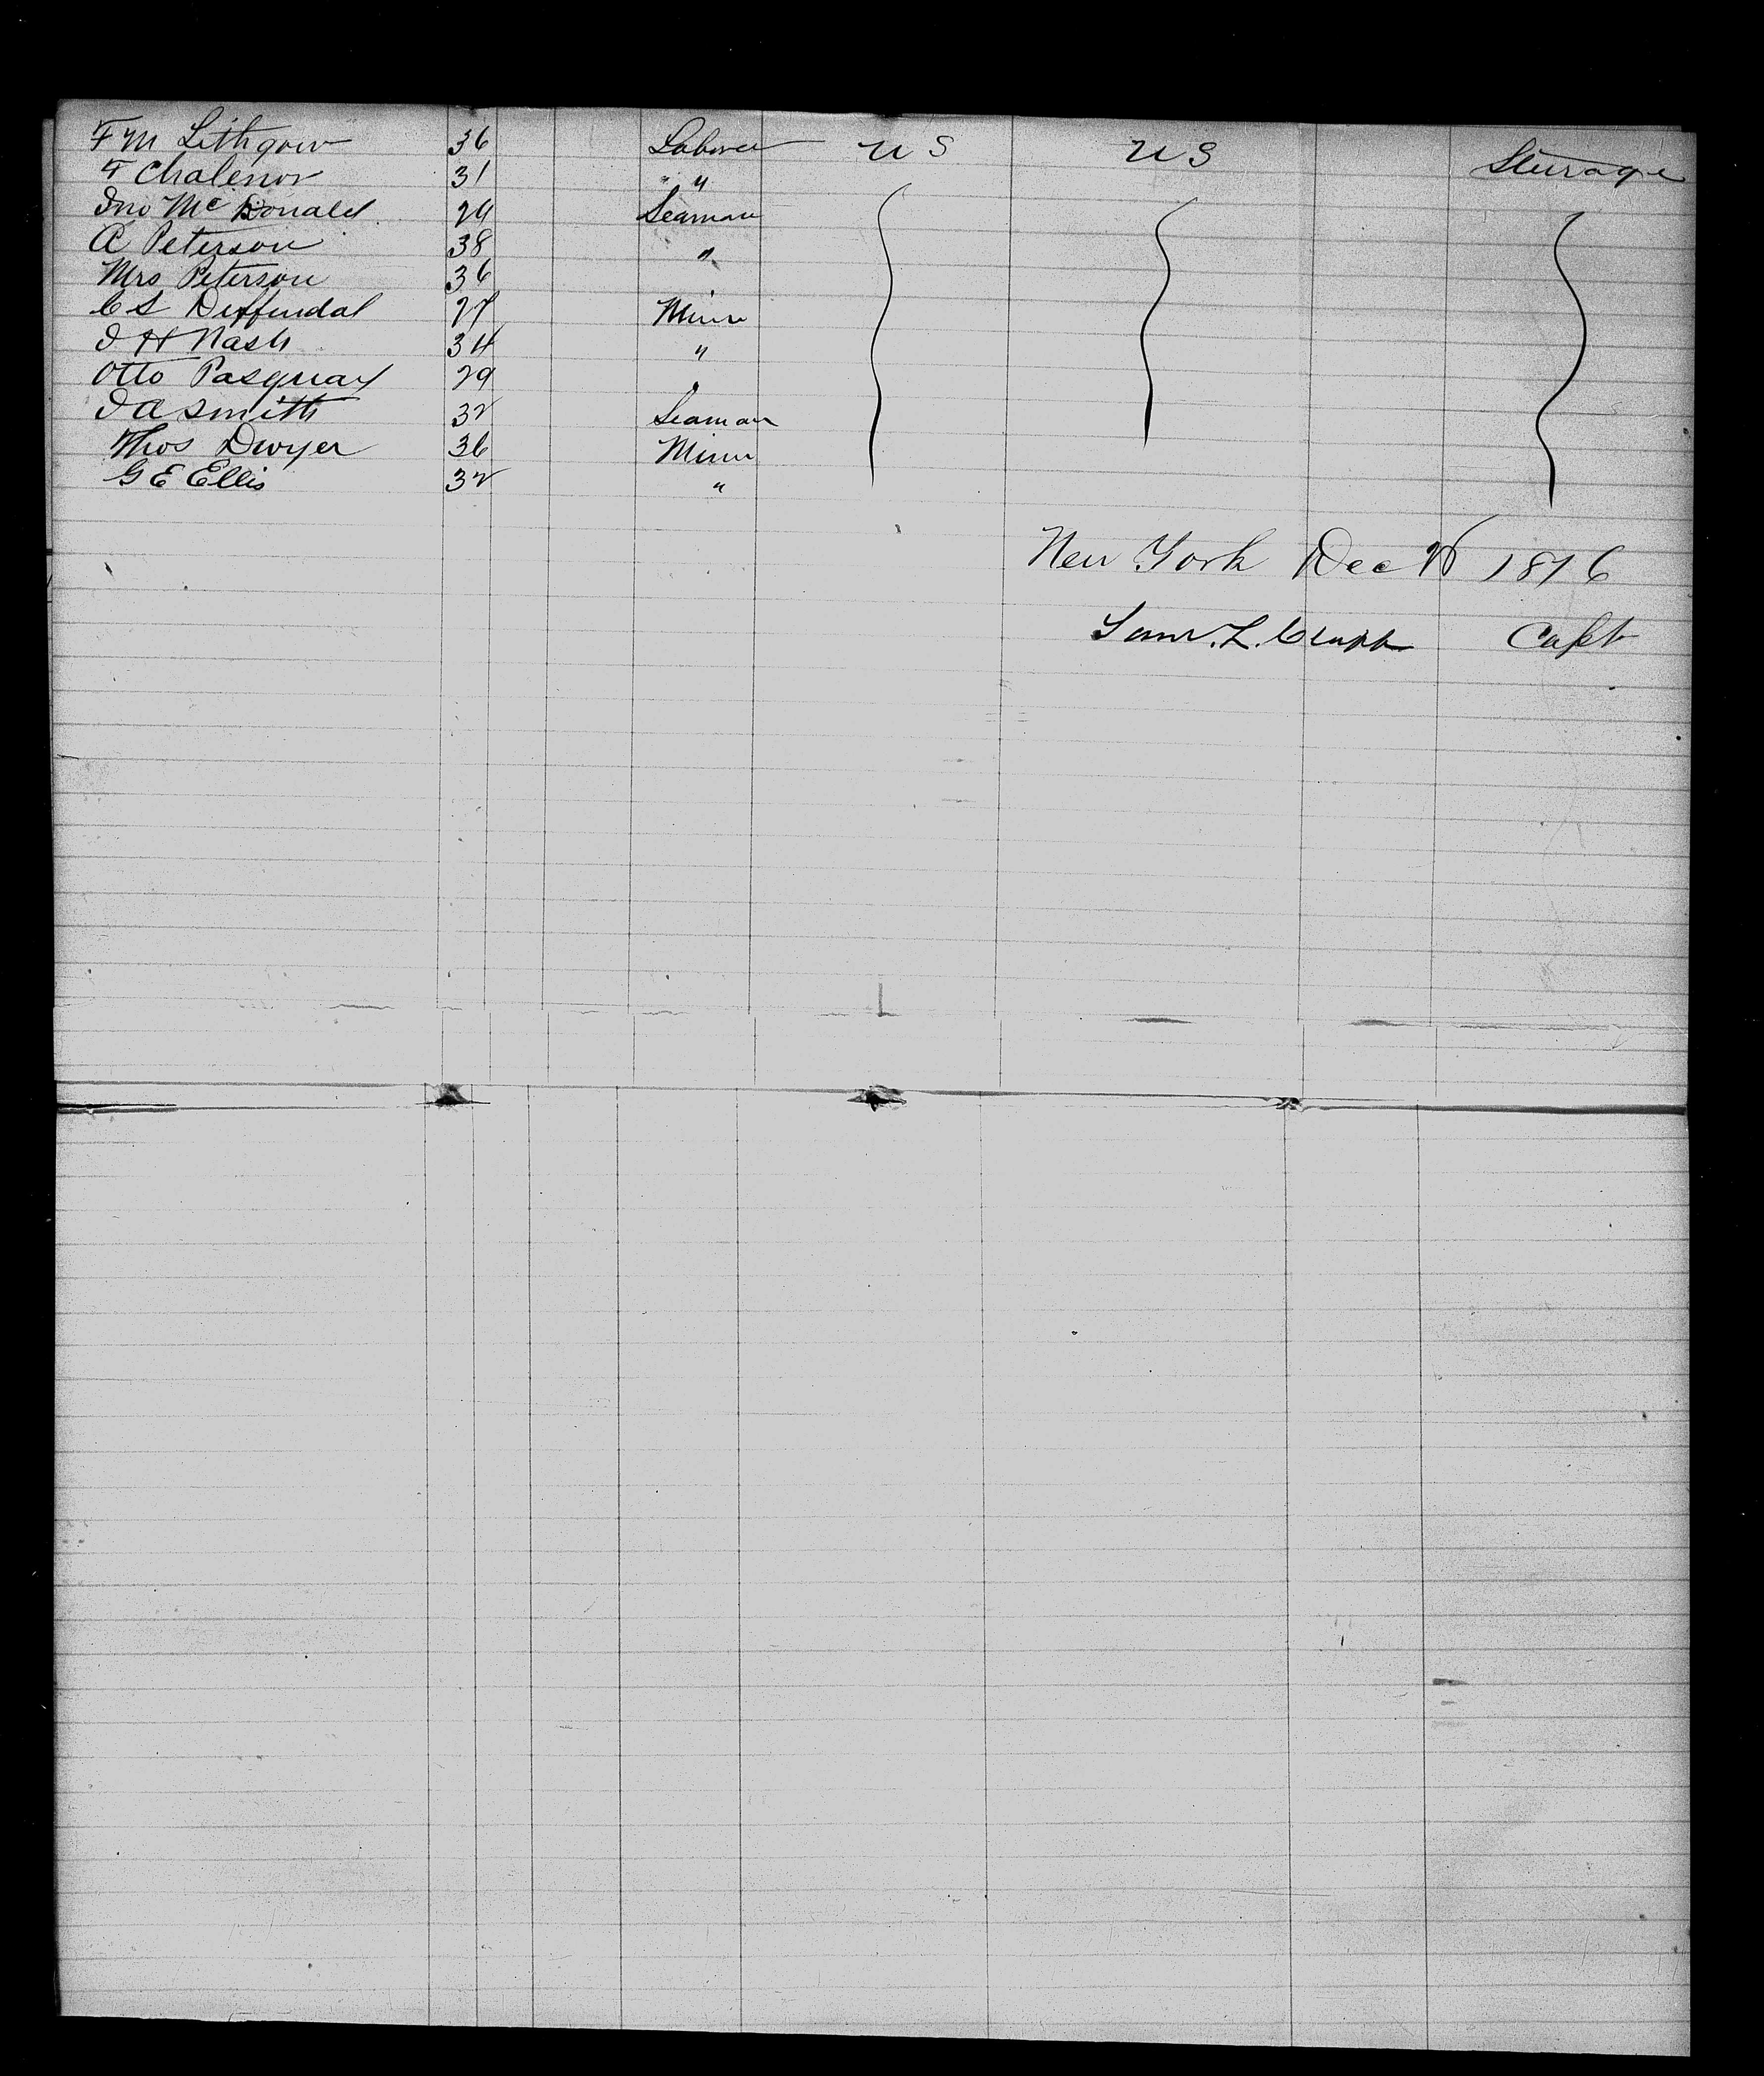 F M Lithgow 36 Laborer U S U S Steerage
F Chalenor 31 " "
Jno Mc Donald 24 Seaman
A Peterson 38 "
Mrs Peterson 36
C S Deffendal 27 Miner
J H Nash 34 "
Otto Pasquay 29 "
J A Smith 32 Seaman
Thos Dwyer 36 Miner
G E Ellis 32 "
New York Dec 1876
Saml. L. Clapp Capt